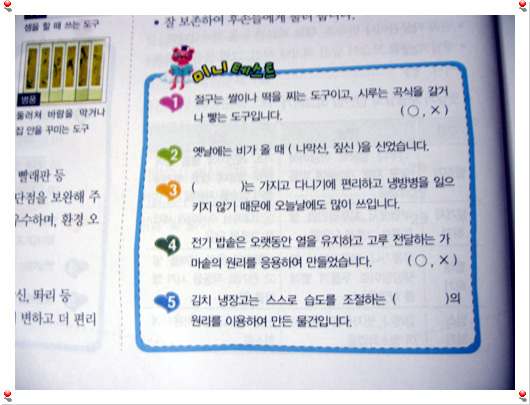 • 잘 보존하여 후손들에게 물려 줍니다.
셈을 할 때 쓰는 도구
병풍
둘러쳐 바람을 막거나
집 안을 꾸미는 도구
빨래판 등
단점을 보완해 주
우수하며, 환경 오
신, 똬리 등
변하고 더 편리
미니 테스트
1 절구는 쌀이나 떡을 찌는 도구이고, 시루는 곡식을 갈거
나 빻는 도구입니다. (○, ×)
2 옛날에는 비가 올 때 ( 나막신, 짚신 )을 신었습니다.
3 ( )는 가지고 다니기에 편리하고 냉방병을 일으
키지 않기 때문에 오늘날에도 많이 쓰입니다.
4 전기 밥솥은 오랫동안 열을 유지하고 고루 전달하는 가
마솥의 원리를 응용하여 만들었습니다. (○, ×)
5 김치 냉장고는 스스로 습도를 조절하는 ( )의
원리를 이용하여 만든 물건입니다.